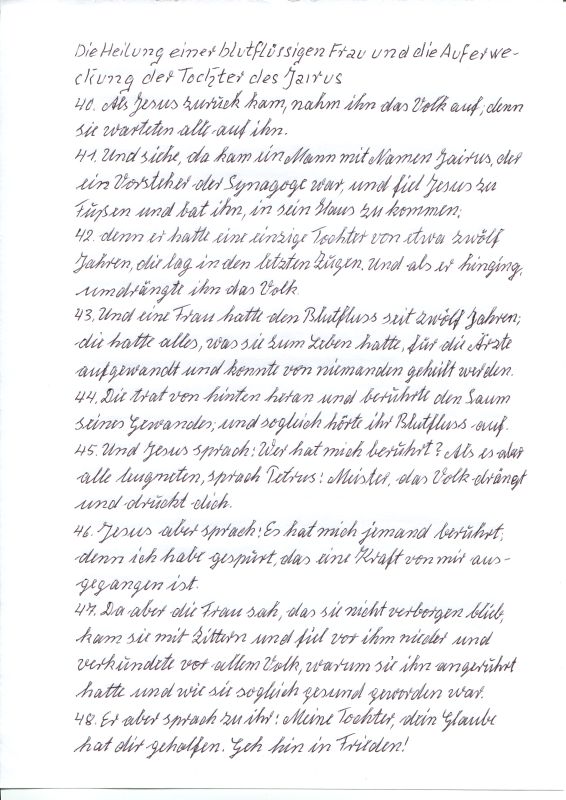 Die Heilung einer blutflüssigen Frau und die Auferwe-
ckung der Tochter des Jairus
40. Als Jesus zurück kam, nahm ihn das Volk auf; denn
sie warteten alle auf ihn.
41. Und siehe, da kam ein Mann mit Namen Jairus, der
ein Vorsteher der Synagoge war, und fiel Jesus zu
Füßen und bat ihn, in sein Haus zu kommen;
42. denn er hatte eine einzige Tochter von etwa zwölf
Jahren, die lag in den letzten Zügen. Und als er hinging,
umdrängte ihn das Volk.
43. Und eine Frau hatte den Blutfluss seit zwölf Jahren;
die hatte alles, was sie zum Leben hatte, für die Ärzte
aufgewandt und konnte von niemanden geheilt werden.
44. Die trat von hinten heran und berührte den Saum
seines Gewandes; und sogleich hörte ihr Blutfluss auf.
45. Und Jesus sprach: Wer hat mich berührt? Als es aber
alle leugneten, sprach Petrus: Meister, das Volk drängt
und drückt dich.
46. Jesus aber sprach: Es hat mich jemand berührt;
denn ich habe gespürt, das eine Kraft von mir aus-
gegangen ist.
47. Da aber die Frau sah, das sie nicht verborgen blieb,
kam sie mit Zittern und fiel vor ihm nieder und
verkündete vor allem Volk, warum sie ihn angerührt
hatte und wie sie sogleich gesund geworden war.
48. Er aber sprach zu ihr: Meine Tochter, dein Glaube
hat dir geholfen. Geh hin in Frieden!